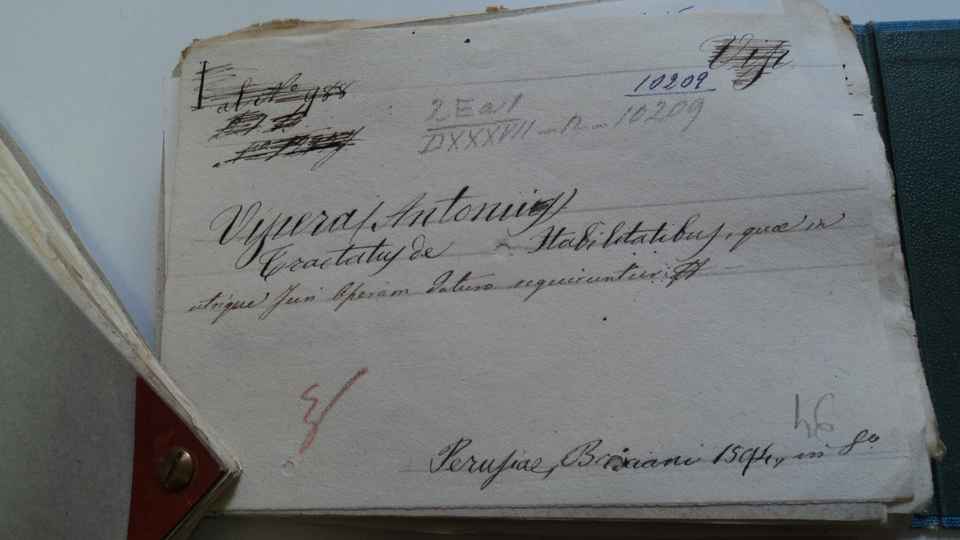 10209
2 E a 1
DXXXVII n 10209
Viperas, Antonius
Tractatus de Habilitatibus, quae in
utrique Juri Operam daturo requiruntur
46
Perusiae, 1594, in 8º